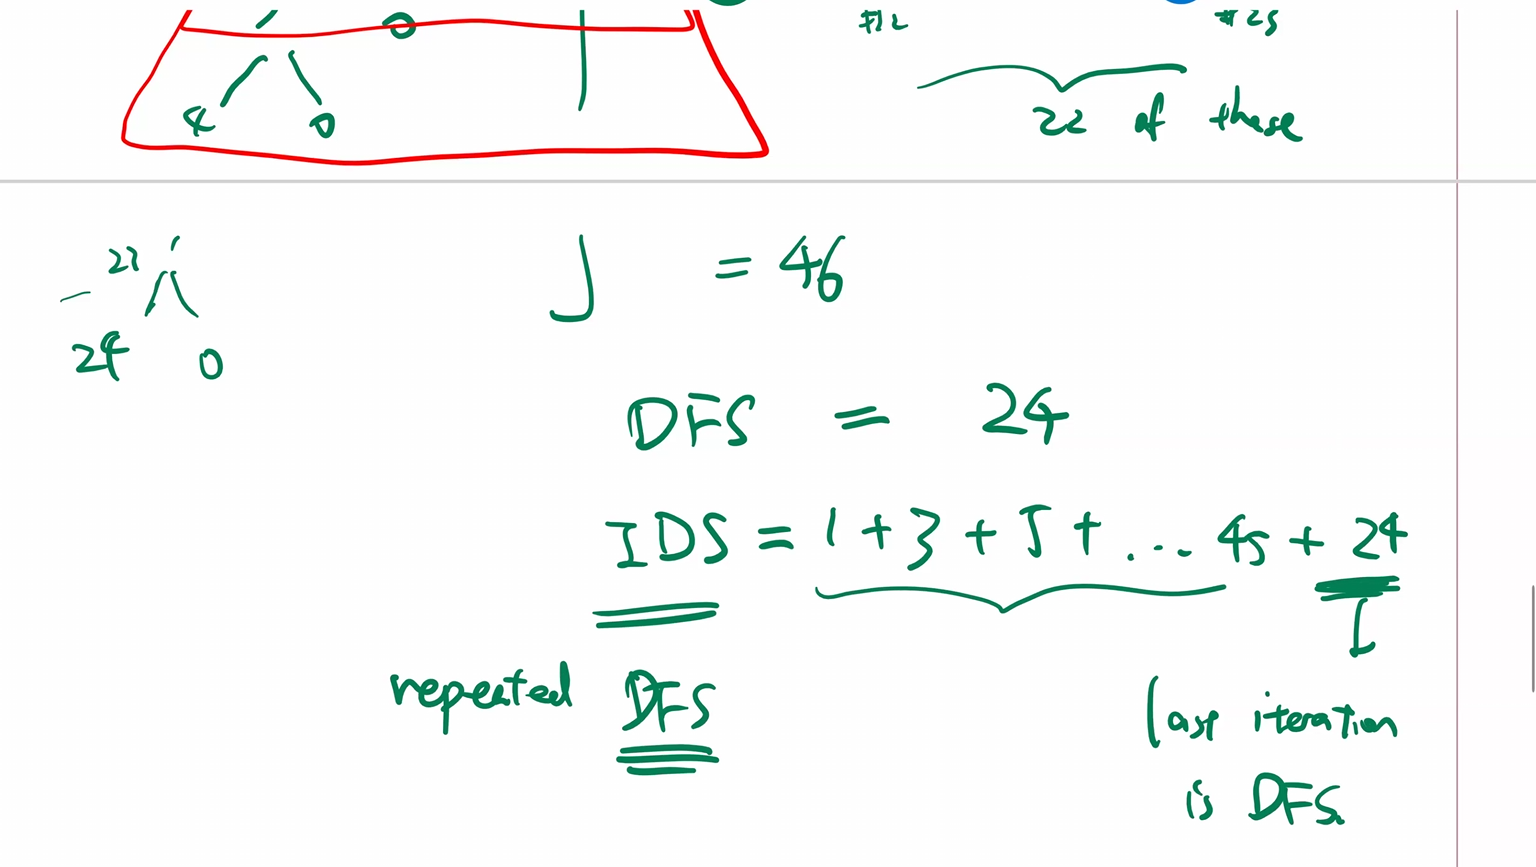 0
#12 #25
4 0
22 of these
23
= 46
24 0
DFS = 24
IDS = 1 + 3 + 5 + ... 45 + 24
repeated DFS
last iteration
is DFS.